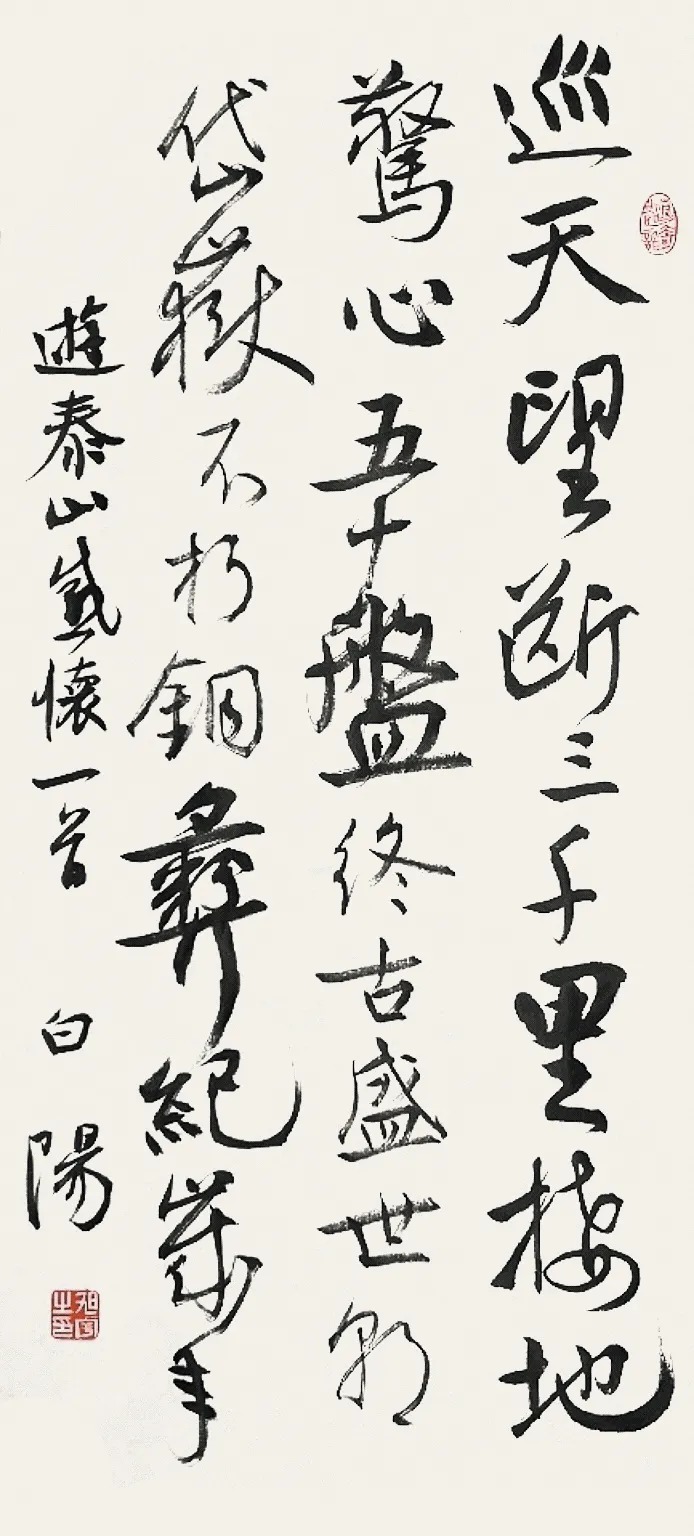 巡天望斷三千里接地
驚心五十盤終古盛世朝
岱嶽不朽銅彝紀歲年
遊泰山感懷一首 白陽